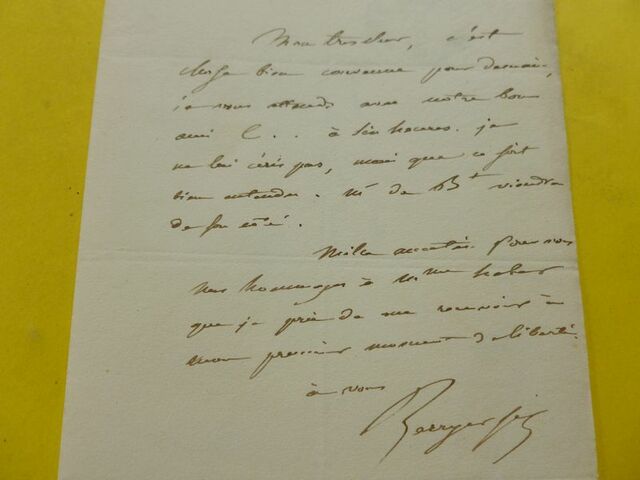 Mon tres cher, c'est
chose bien convenue pour demain,
je vous attends avec notre bon
ami C... à six heures. je
ne lui écris pas, mais que ce soit
bien entendu. Mr de Bt viendra
de son côté.
Mille amitiés. Pour vous
mes hommages à Mme
que je prie de me recevoir à
mon premier moment de liberté.
à vous
Berryer fils